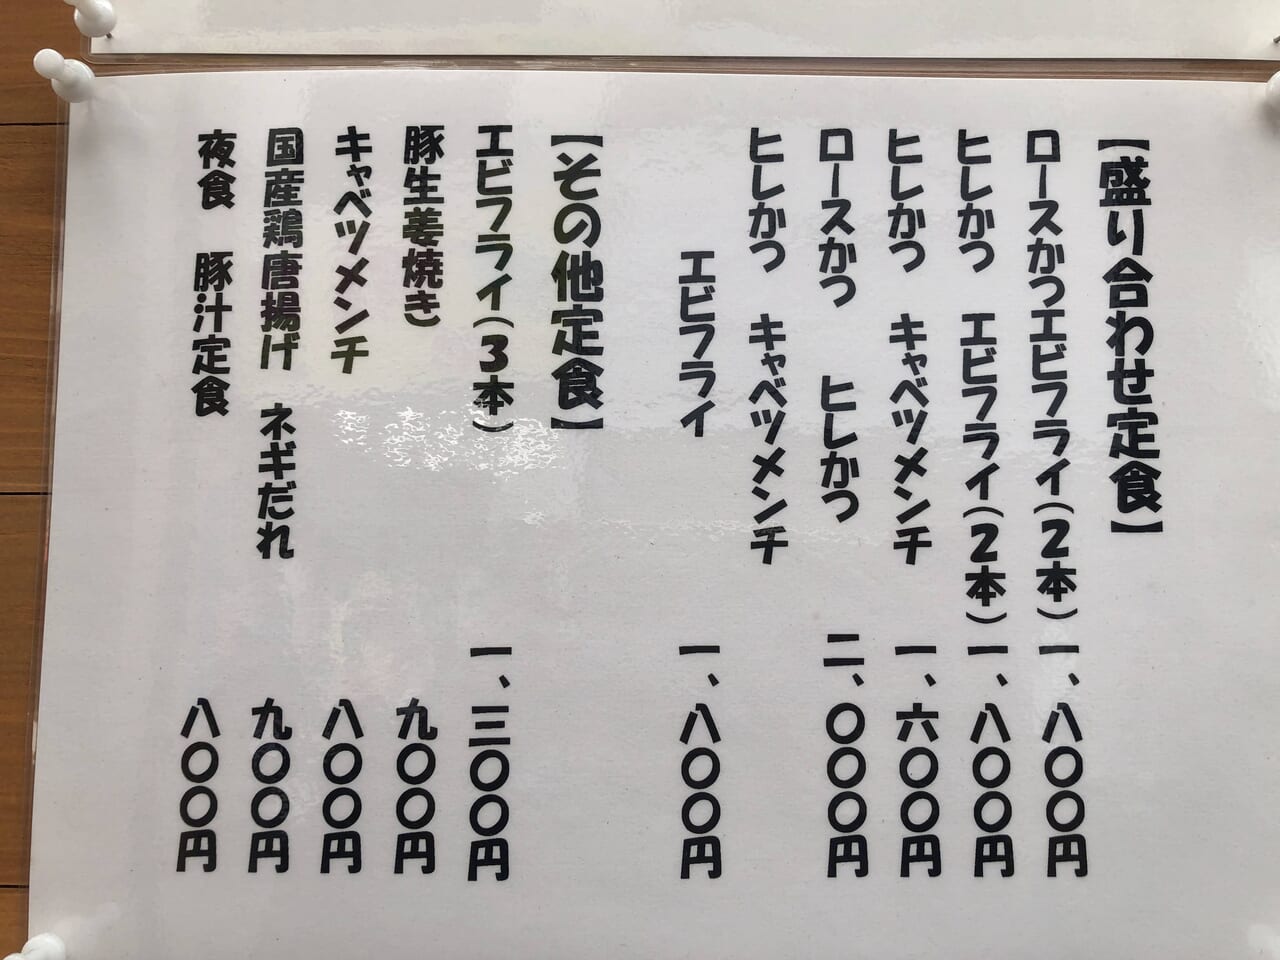 【盛り合わせ定食】
ロースかつエビフライ(2本) 一、八〇〇円
ヒレかつ エビフライ(2本) 一、八〇〇円
ヒレかつ キャベツメンチ 一、六〇〇円
ロースかつ ヒレかつ 二、〇〇〇円
ヒレかつ キャベツメンチ
エビフライ 一、八〇〇円
【その他定食】
エビフライ(3本) 一、三〇〇円
豚生姜焼き 九〇〇円
キャベツメンチ 八〇〇円
国産鶏唐揚げ ネギだれ 九〇〇円
夜食 豚汁定食 八〇〇円